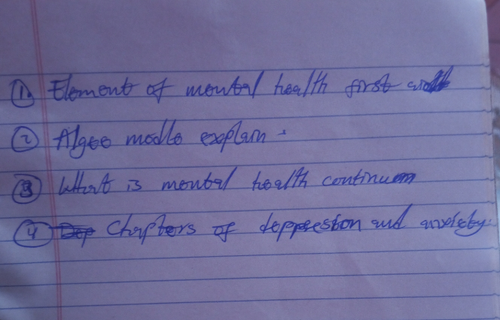 ① Element of mental health first
② Algee modle explain.
③ What is mental health continuum
④ Chapters of deppression and anxiety